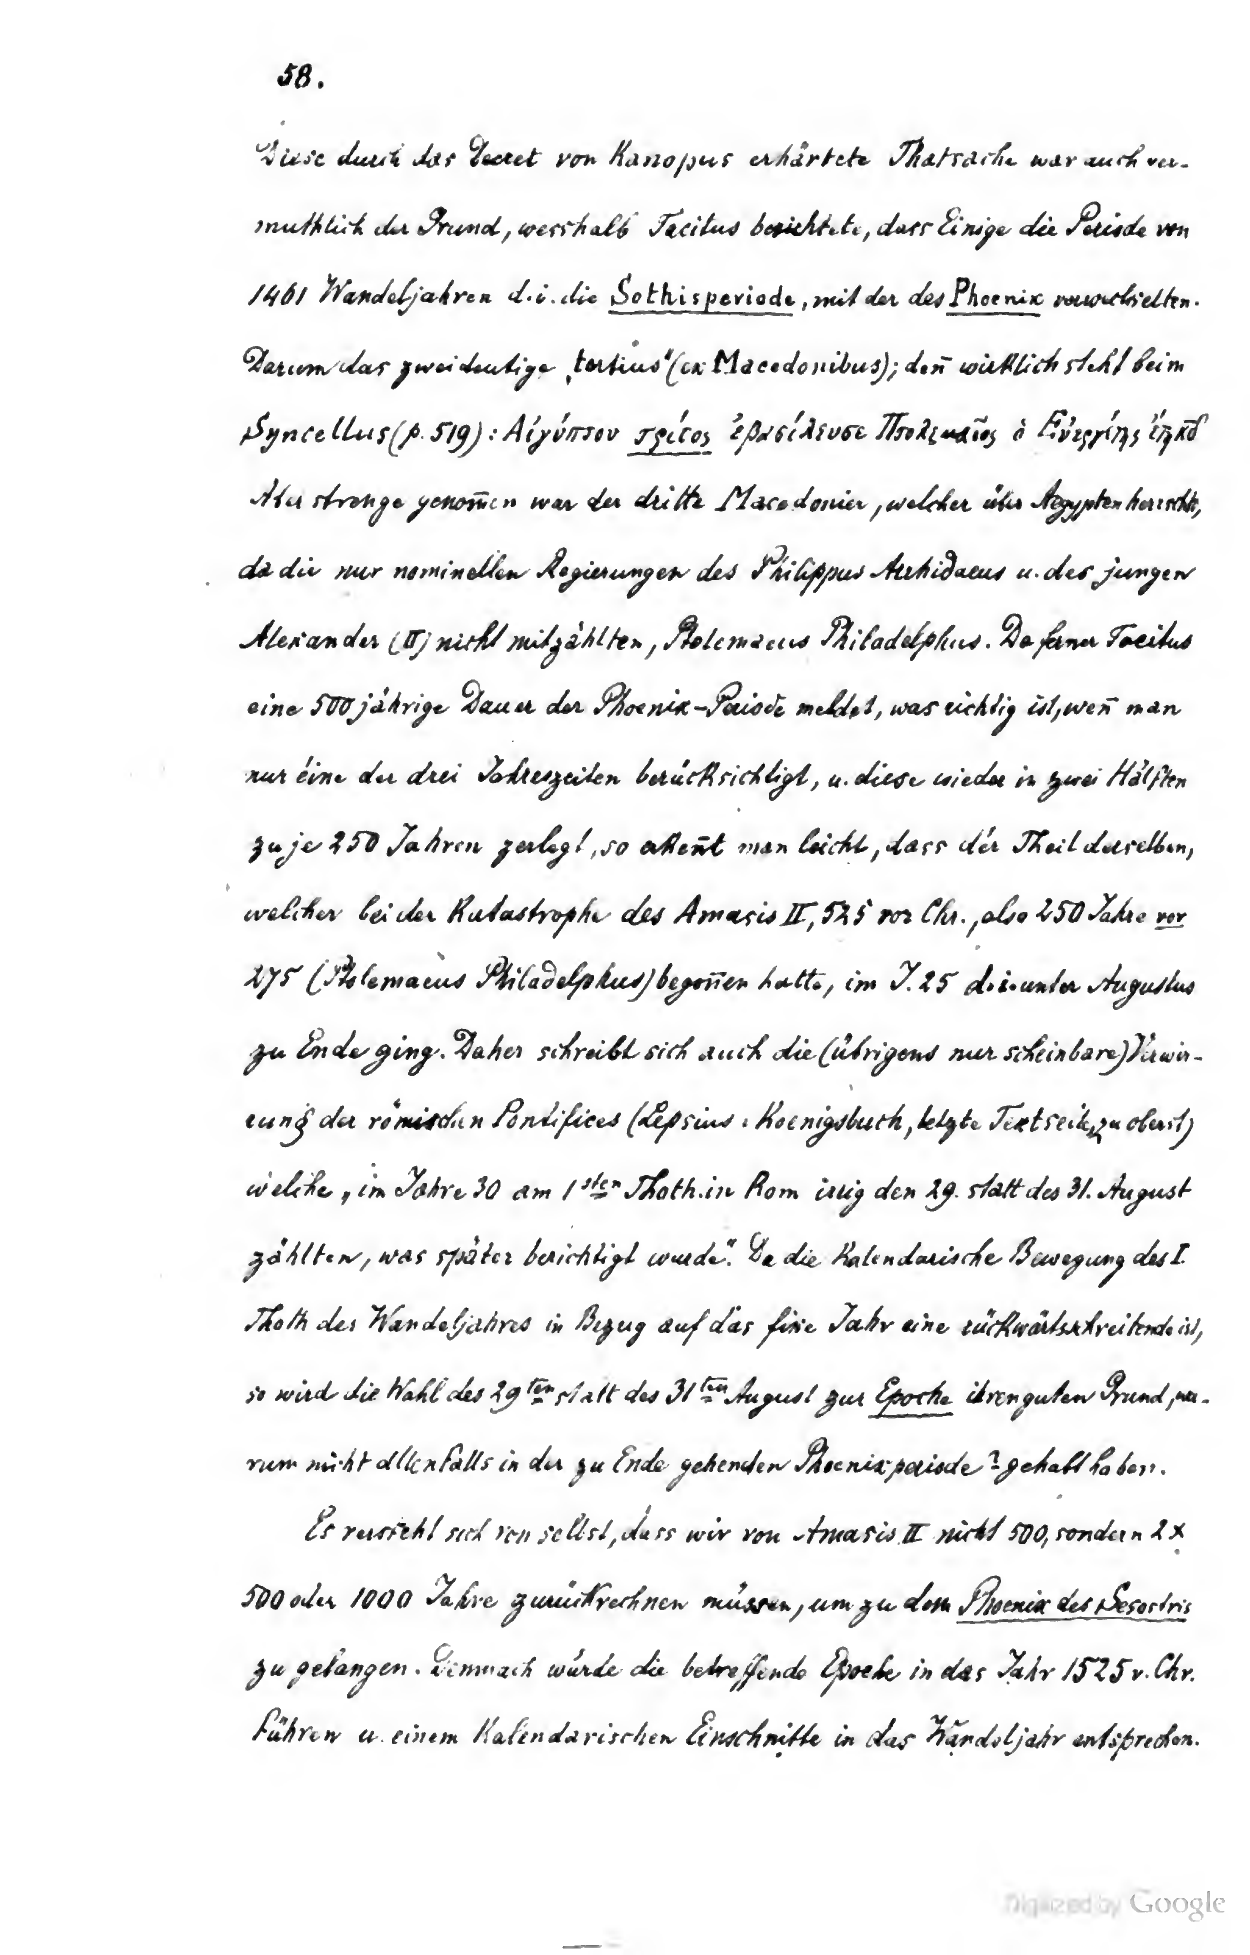 58.
Diese durch das Decret von Kanopus erhärtete Thatsache war auch ver-
muthlich der Grund, wesshalb Tacitus berichtete, dass Einige die Periode von
1461 Wandeljahren d.i. die Sothisperiode, mit der des Phoenix verwechselten.
Darum das zweideutige „tertius“ (ex Macedonibus); den̄ wirklich steht beim
Syncellus (p. 519): Αἰγύπτου τρίτος ἐβασίλευσε Πτολεμαῖος ὁ Εὐεργέτης ἔτη κδ
Aber strenge genom̄en war der dritte Macedonier, welcher über Aegypten herrschte,
da die nur nominellen Regierungen des Philippus Arrhidaeus u. des jungen
Alexander (II) nicht mitzählten, Ptolemaeus Philadelphus. Da ferner Tacitus
eine 500jährige Dauer der Phoenix-Periode meldet, was richtig ist, wen̄ man
nur éine der drei Jahreszeiten berücksichtigt, u. diese wieder in zwei Hälften
zu je 250 Jahren zerlegt, so erken̄t man leicht, dass dér Theil derselben,
welcher bei der Katastrophe des Amasis II, 525 vor Chr., also 250 Jahre vor
275 (Ptolemaeus Philadelphus) begon̄en hatte, im J. 25 d.i. unter Augustus
zu Ende ging. Daher schreibt sich auch die (übrigens nur scheinbare) Verwir-
rung der römischen Pontifices (Lepsius: Koenigsbuch, letzte Textseite, zu oberst)
welche „im Jahre 30 am 1sten Thoth in Rom irrig den 29. statt des 31. August
zählten, was später berichtigt wurde“. Da die kalendarische Bewegung des I.
Thoth des Wandeljahres in Bezug auf das fixe Jahr eine rückwärtsschreitende ist,
so wird die Wahl des 29ten statt des 31ten August zur Epoche ihren guten Grund, wa-
rum nicht allenfalls in der zu Ende gehenden Phoenixperiode? gehabt haben.
Es versteht sich von selbst, dass wir von Amasis II nicht 500, sondern 2 x
500 oder 1000 Jahre zurückrechnen müssen, um zu dem Phoenix des Sesostris
zu gelangen. Demnach würde die betreffende Epoche in das Jahr 1525 v. Chr.
führen u. einem kalendarischen Einschnitte in das Wandeljahr entsprechen.
Digitized by Google